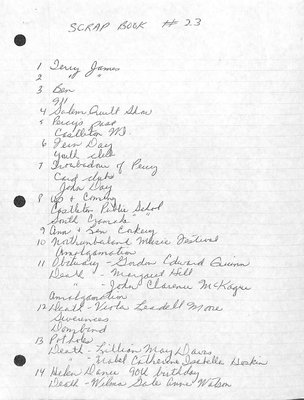 SCRAP BOOK # 23
1 Terry James
2 " "
3 Ben
911
4 Salem Quilt Show
5 Percy's past
Castleton W.I.
6 Fern Day
Youth club
7 Troubadour of Percy
Card clubs
John Day
8 Up & Coming
Castleton Public School
South Cramahe " "
9 Ann & Ben
10 Northumberland Music Festival
Amalgamation
11 Obituary - Gordon Edward Guinn
Death - Margaret Hill
" - John Clarence McKague
Amalgamation
12 Death - Viola Leadell Moore
Severences
Dombind
13 Potholes
Death - Lillian May Davis
" - Mabel Catherine Isabella
14 Helen Dance 90th birthday
Death - Wilma Gale Anne Wilson